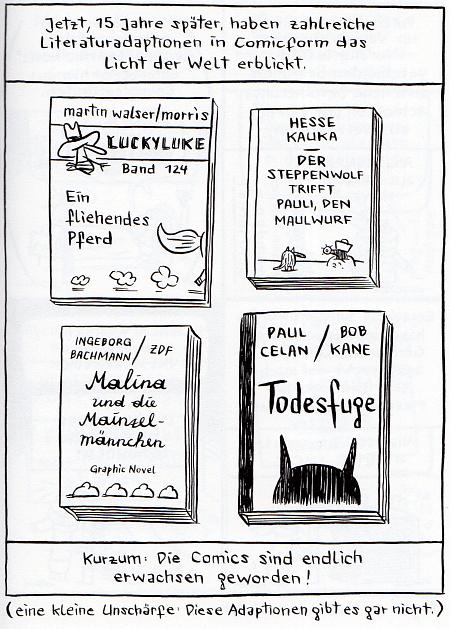 Jetzt, 15 Jahre später, haben zahlreiche
Literaturadaptionen in Comicform das
Licht der Welt erblickt.
martin walser/morris
LUCKYLUKE
Band 124
Ein
fliehendes
Pferd
HESSE
KAUKA
DER
STEPPENWOLF
TRIFFT
PAULI, DEN
MAULWURF
INGEBORG
BACHMANN / ZDF
Malina
und die
Mainzel-
männchen
Graphic Novel
PAUL / BOB
CELAN / KANE
Todesfuge
Kurzum: Die Comics sind endlich
erwachsen geworden!
(eine kleine Unschärfe: Diese Adaptionen gibt es gar nicht.)